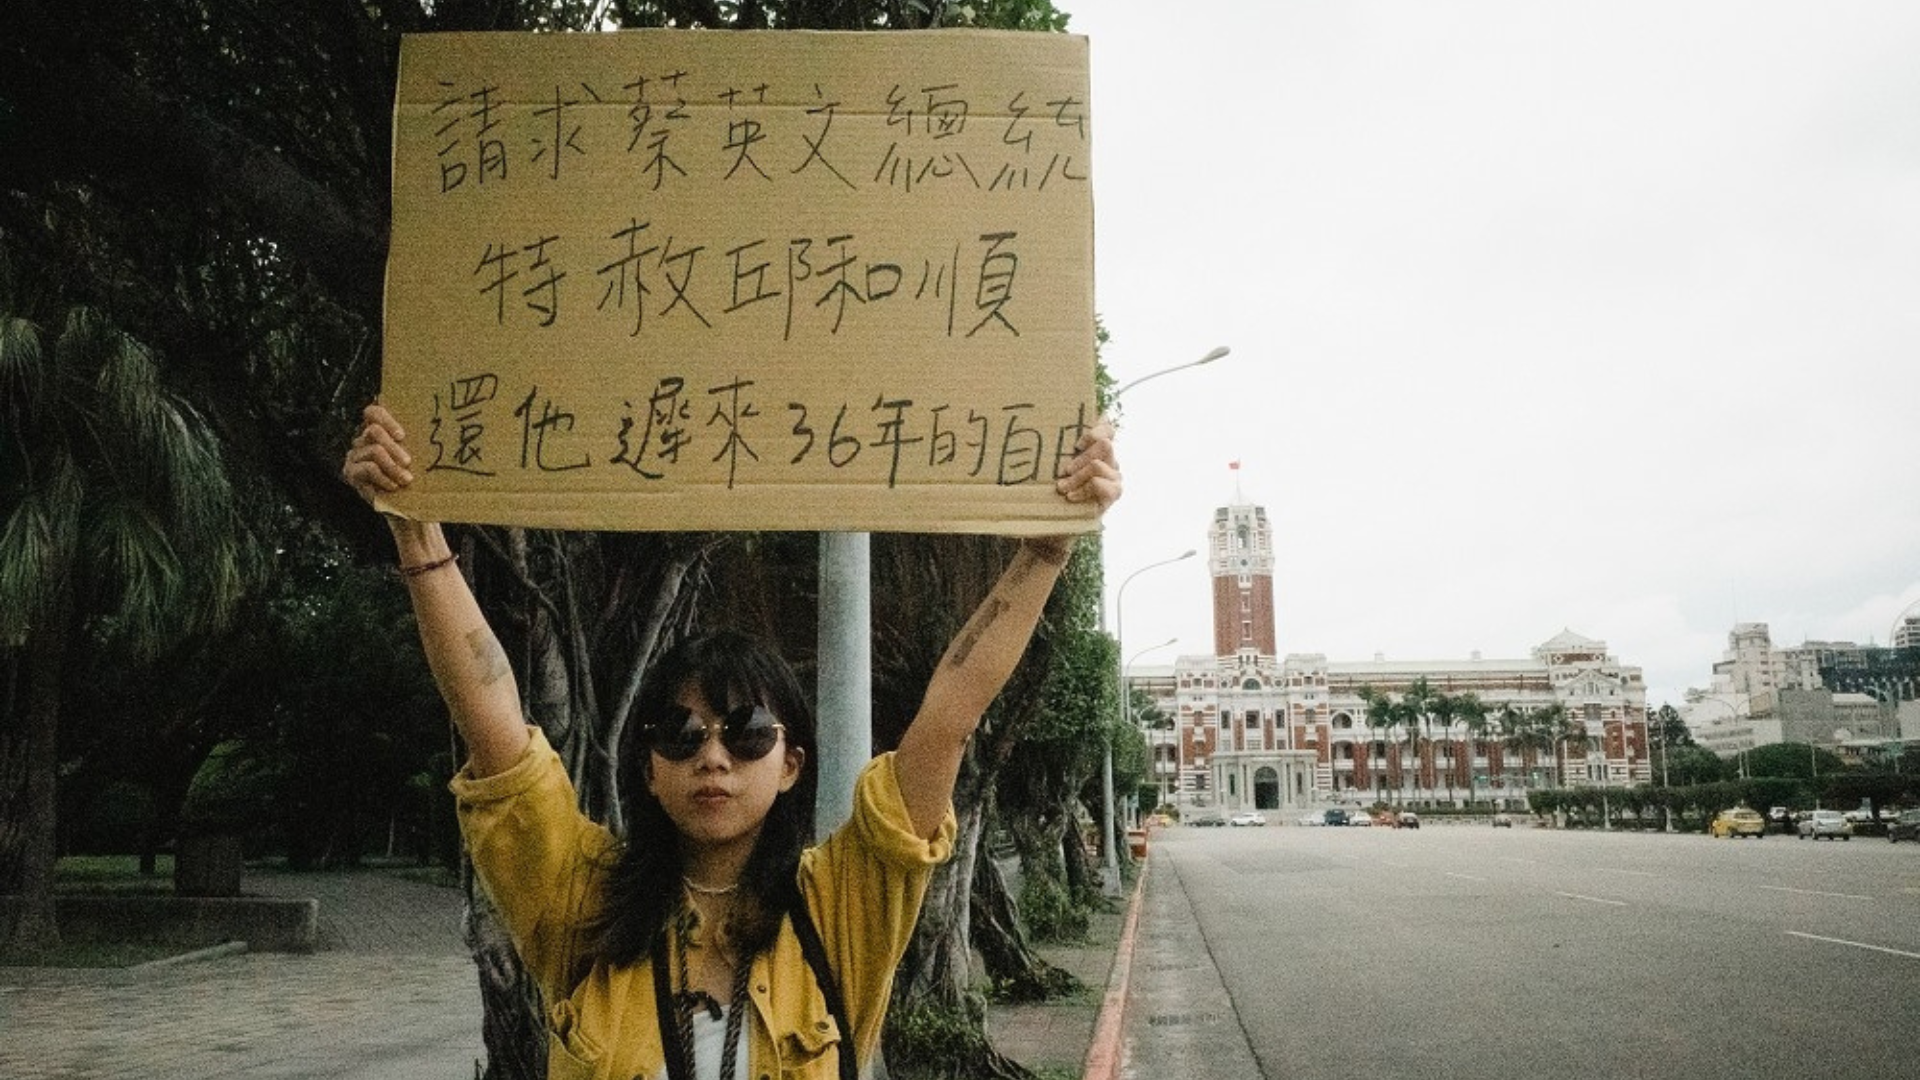 請求蔡英文總統
特赦邱和順
還他遲來36年的自由